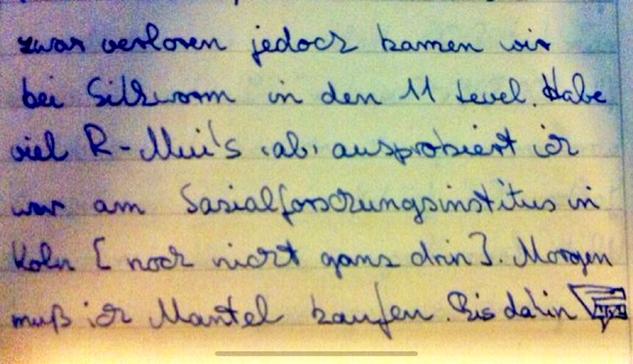 zwar verloren jedoch kamen wir
bei Silkworm in den 11 Level. Habe
viel R-Mui's ab, ausprobiert ich
war am Sozialforschungsinstitus in
Köln [noch nicht ganz drin]. Morgen
muß ich Mantel kaufen. Bis dahin